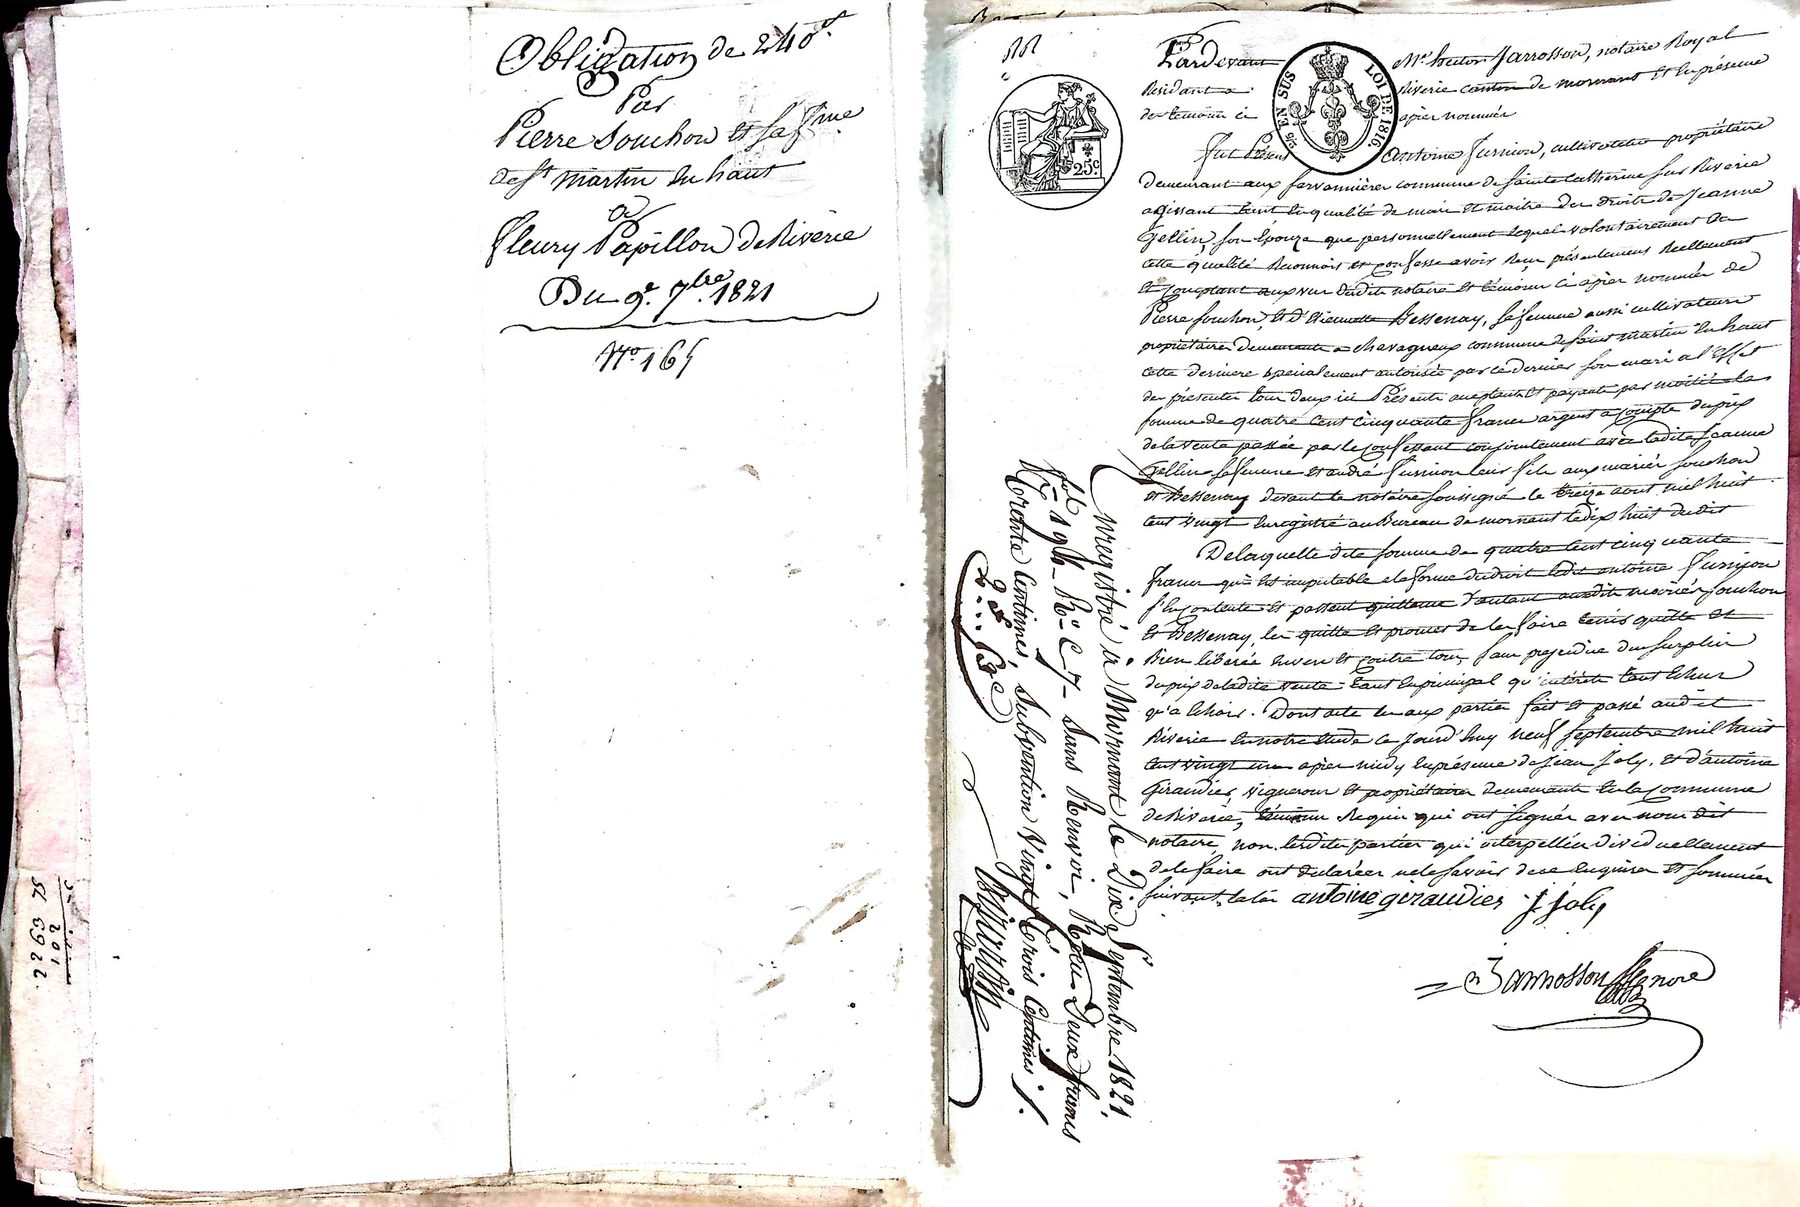 Obligation de 240f.
Par
Pierre Souchon et sa fme
de st martin en haut
a
fleury Papillon de Riverie
Du 9e. 7bre. 1821
No. 165
Pardevant Me. hector Jarrosson, notaire Royal
Residant a Riverie canton de mornant et En présence
des temoins ci après nommés
fut Présent Antoine fusnion, cultivateur propriétaire
demeurant aux commune de sainte catherine sur Riverie
agissant tant En qualité de mari et maitre des droits de Jeanne
Gellin, son Epouze que personnellement lequel volontairement En
cette qualité Reconnois et confesse avoir Reçu présentement Reellement
et comptant aux vus dudit notaire et témoins ci après nommés de
Pierre souchon, et d'Etiennette Bessenay, sa femme aussi cultivateurs
propriétaires demeurants a chavagneux commune de saint martin En haut
cette derniere specialement autorisée par ce dernier son mari a l'Effet
des présentes tous deux ici Présents acceptants et payants par moitié la
somme de quatre cent cinquante francs argent a compte du prix
de la vente passée par le confessant conjointement avec ladite Jeanne
Gellin sa femme et andré fusnion leur fils aux mariés souchon
et Bessenay devant le notaire soussigné le treize aout mil huit
cent vingt Enregistré au Bureau de mornant le dix huit dudit
De laquelle dite somme de quatre cent cinquante
francs qui Est imputable a la forme du droit ledit antoine fusnion
s'En contente et passent quittance d'autant auxdits mariés souchon
et Bessenay, les quitte et promet de les faire tenir quitte et
Bien libérés Envers et contre tous, sans prejudice du surplus
du prix de ladite vente tant En principal qu'intérêts tant Echus
qu'a Echoir. Dont acte lu aux parties fait et passé audit
Riverie En notre Etude ce Jourd'huy neuf septembre mil huit
cent vingt un après midy En présence de Jean Joly, et d'antoine
Giraudier, vignerons et propriétaires demeurants En la commune
de Riverie, témoins Requis qui ont signés avec nous dit
notaire, non lesdites parties qui interpellées individuellement
de le faire ont déclarées ne le savoir de ce Enquises et sommées
suivant la loi antoine giraudier J joly
Jarrosson Nore
Enregistré à Mornant le Dix Septembre 1821,
fol 194 Ro C 7 Sans Renvoi, Reçu Deux francs
trente Centimes, Subvention Vingt trois Centimes ./.
2f..53c
EN SUS
LOI DE 1816.
25c.
201
6922